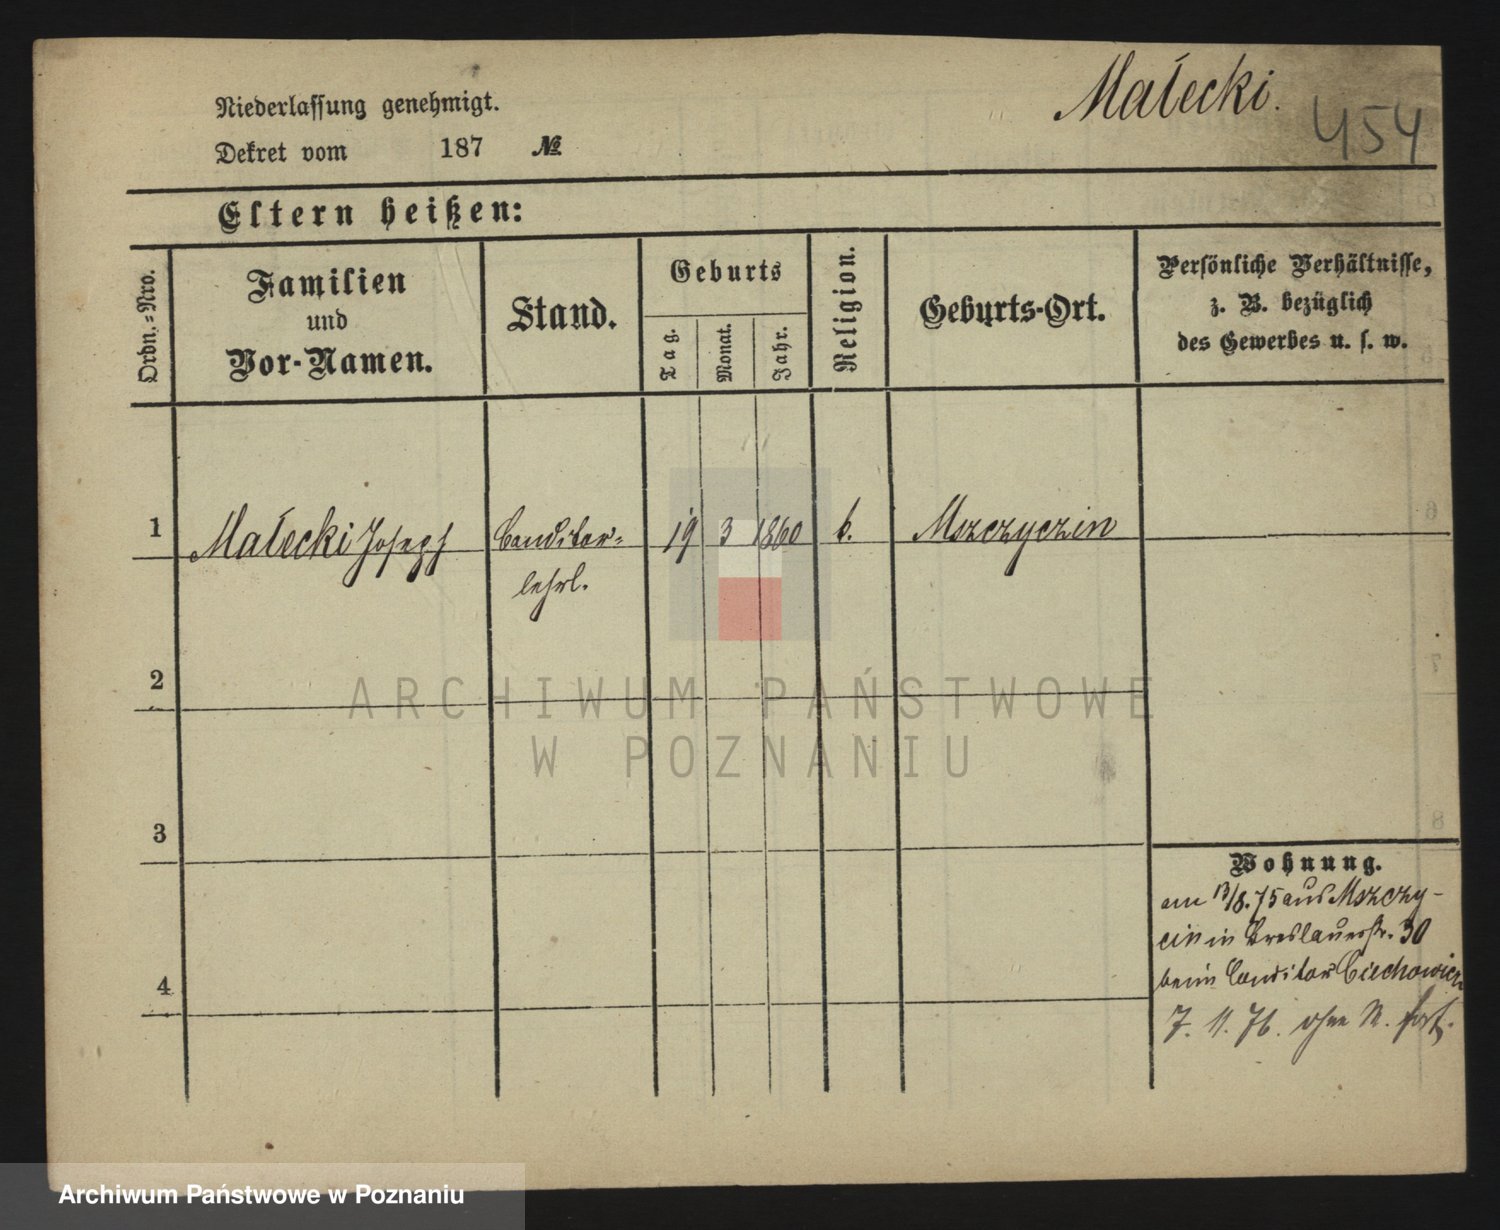 Małecki.
454
Niederlassung genehmigt.
Dekret vom 187 №
Eltern heißen:
Ordn.-Nro.
Familien
und
Vor-Namen.
Stand.
Geburts
Tag.
Monat.
Jahr.
Religion.
Geburts-Ort.
Persönliche Verhältnisse,
z. B. bezüglich
des Gewerbes u. s. w.
1 Małecki Joseph Conditor= 19 3 1860 k. Mszczyczin
lehrl.
2
3
4
Wohnung.
am 13/8. 75 aus Mszczy-
cin in Breslauerstr. 30
beim Conditor Ciechowicz
7. 11. 76. ohne A. fort.
ARCHIWUM PAŃSTWOWE
W POZNANIU
Archiwum Państwowe w Poznaniu